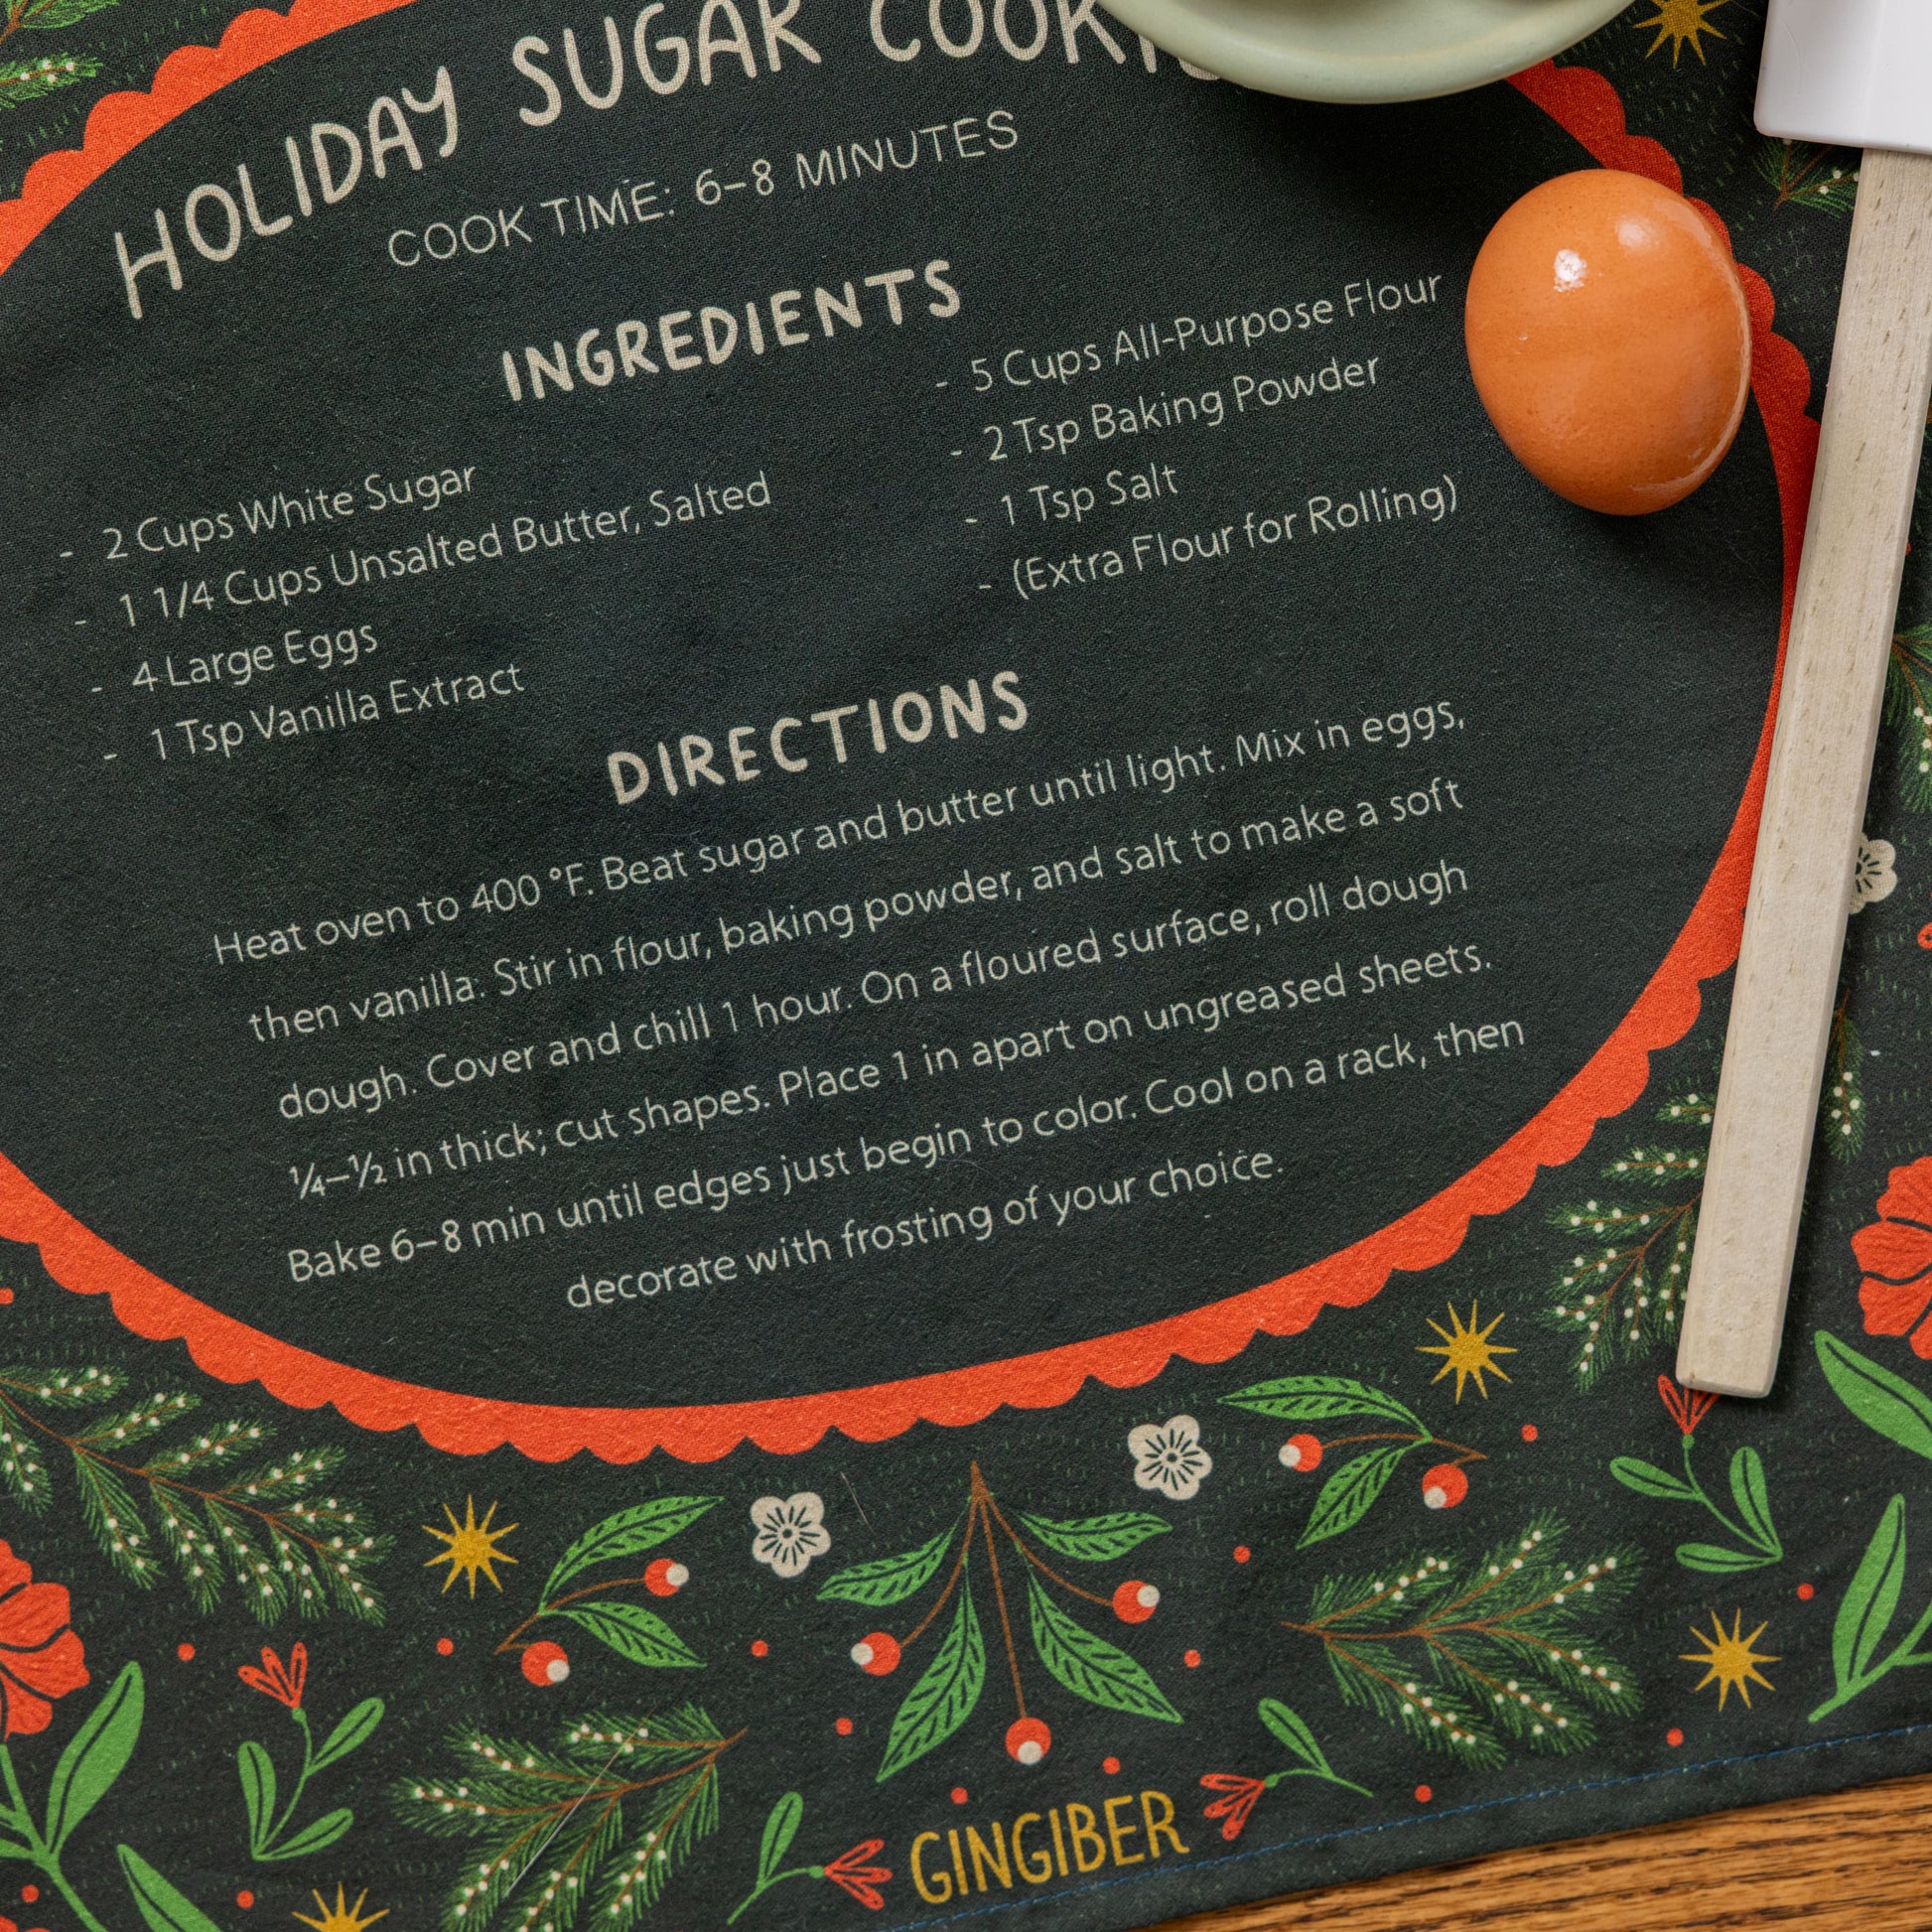 HOLIDAY SUGAR
COOK TIME: 6–8 MINUTES
INGREDIENTS
- 2 Cups White Sugar
- 1 1/4 Cups Unsalted Butter, Salted
- 4 Large Eggs
- 1 Tsp Vanilla Extract
- 5 Cups All-Purpose Flour
- 2 Tsp Baking Powder
- 1 Tsp Salt
- (Extra Flour for Rolling)
DIRECTIONS
Heat oven to 400 °F. Beat sugar and butter until light. Mix in eggs,
then vanilla. Stir in flour, baking powder, and salt to make a soft
dough. Cover and chill 1 hour. On a floured surface, roll dough
¼–½ in thick; cut shapes. Place 1 in apart on ungreased sheets.
Bake 6–8 min until edges just begin to color. Cool on a rack, then
decorate with frosting of your choice.
GINGIBER